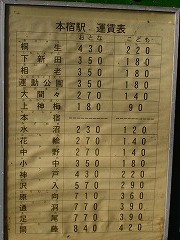 本宿駅 運賃表
おとな こども
桐生 430 220
下新田 350 180
相老 350 180
運動公園 350 180
大間々 270 140
上神梅 180 90
本宿
水沼 230 120
花輪 270 140
中野 270 140
小中 350 180
神戸 430 220
沢入 570 290
原向 710 360
通洞 770 390
足尾 770 390
間藤 840 420